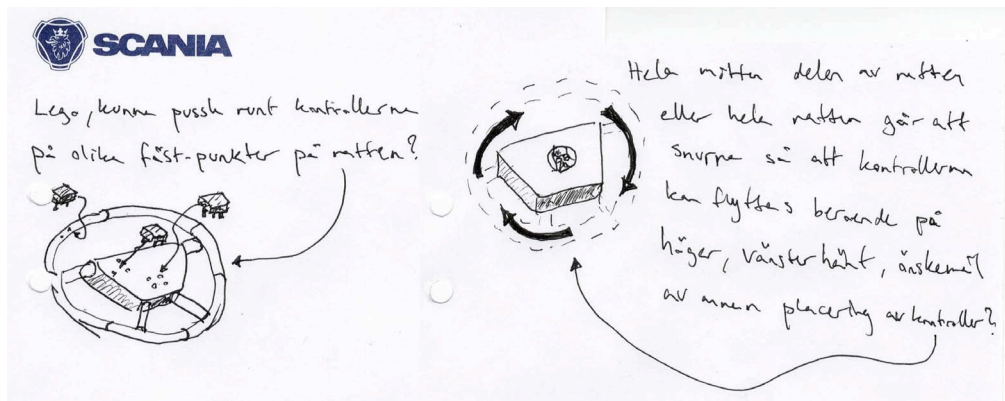 SCANIA
Lego, kunna pussla runt kontrollerna
på olika fäst-punkter på ratten?
Hela mitten delen av ratten
eller hela ratten går att
snurra så att kontrollerna
kan flyttas beroende på
höger, vänsterhänt, önskemål
av annan placering av kontroller?